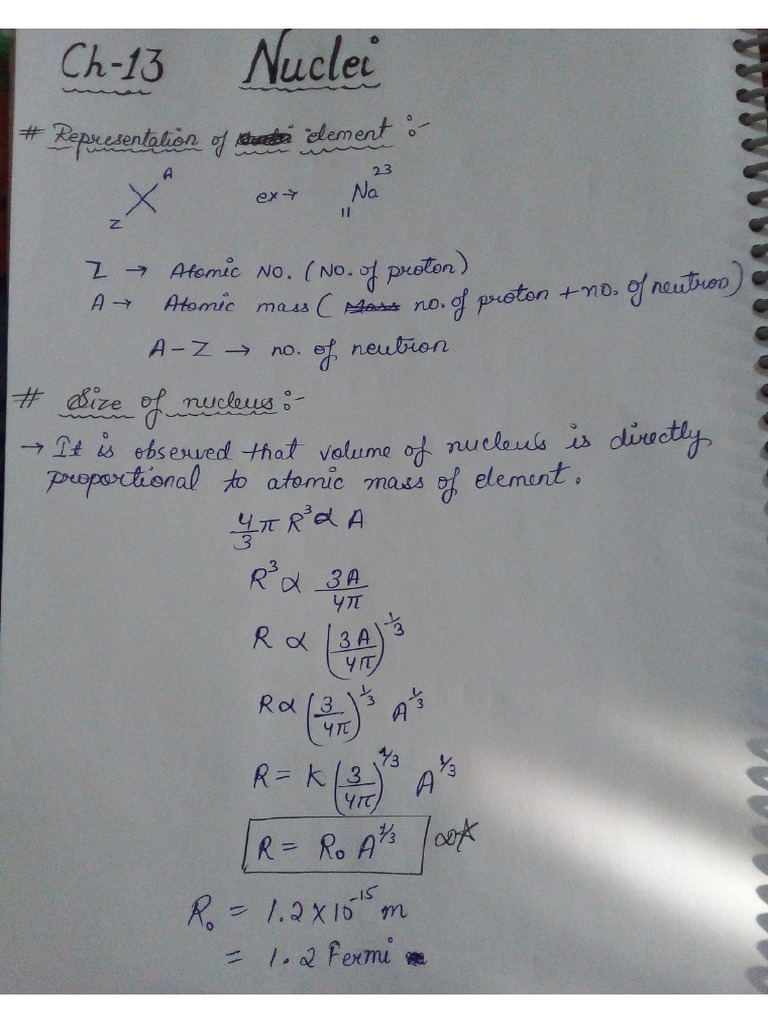 Ch-13 Nuclei
# Representation of element :-
X A Z ex → 11 Na 23
Z → Atomic No. (No. of proton)
A → Atomic mass ( Mass no. of proton + no. of neutron)
A - Z → no. of neutron
# Size of nucleus :-
→ It is observed that volume of nucleus is directly
proportional to atomic mass of element.
4/3 π R³ ∝ A
R³ ∝ 3A/4π
R ∝ (3A/4π)^1/3
R ∝ (3/4π)^1/3 A^1/3
R = K (3/4π)^1/3 A^1/3
R = R₀ A^1/3
R₀ = 1.2 × 10⁻¹⁵ m
= 1.2 Fermi